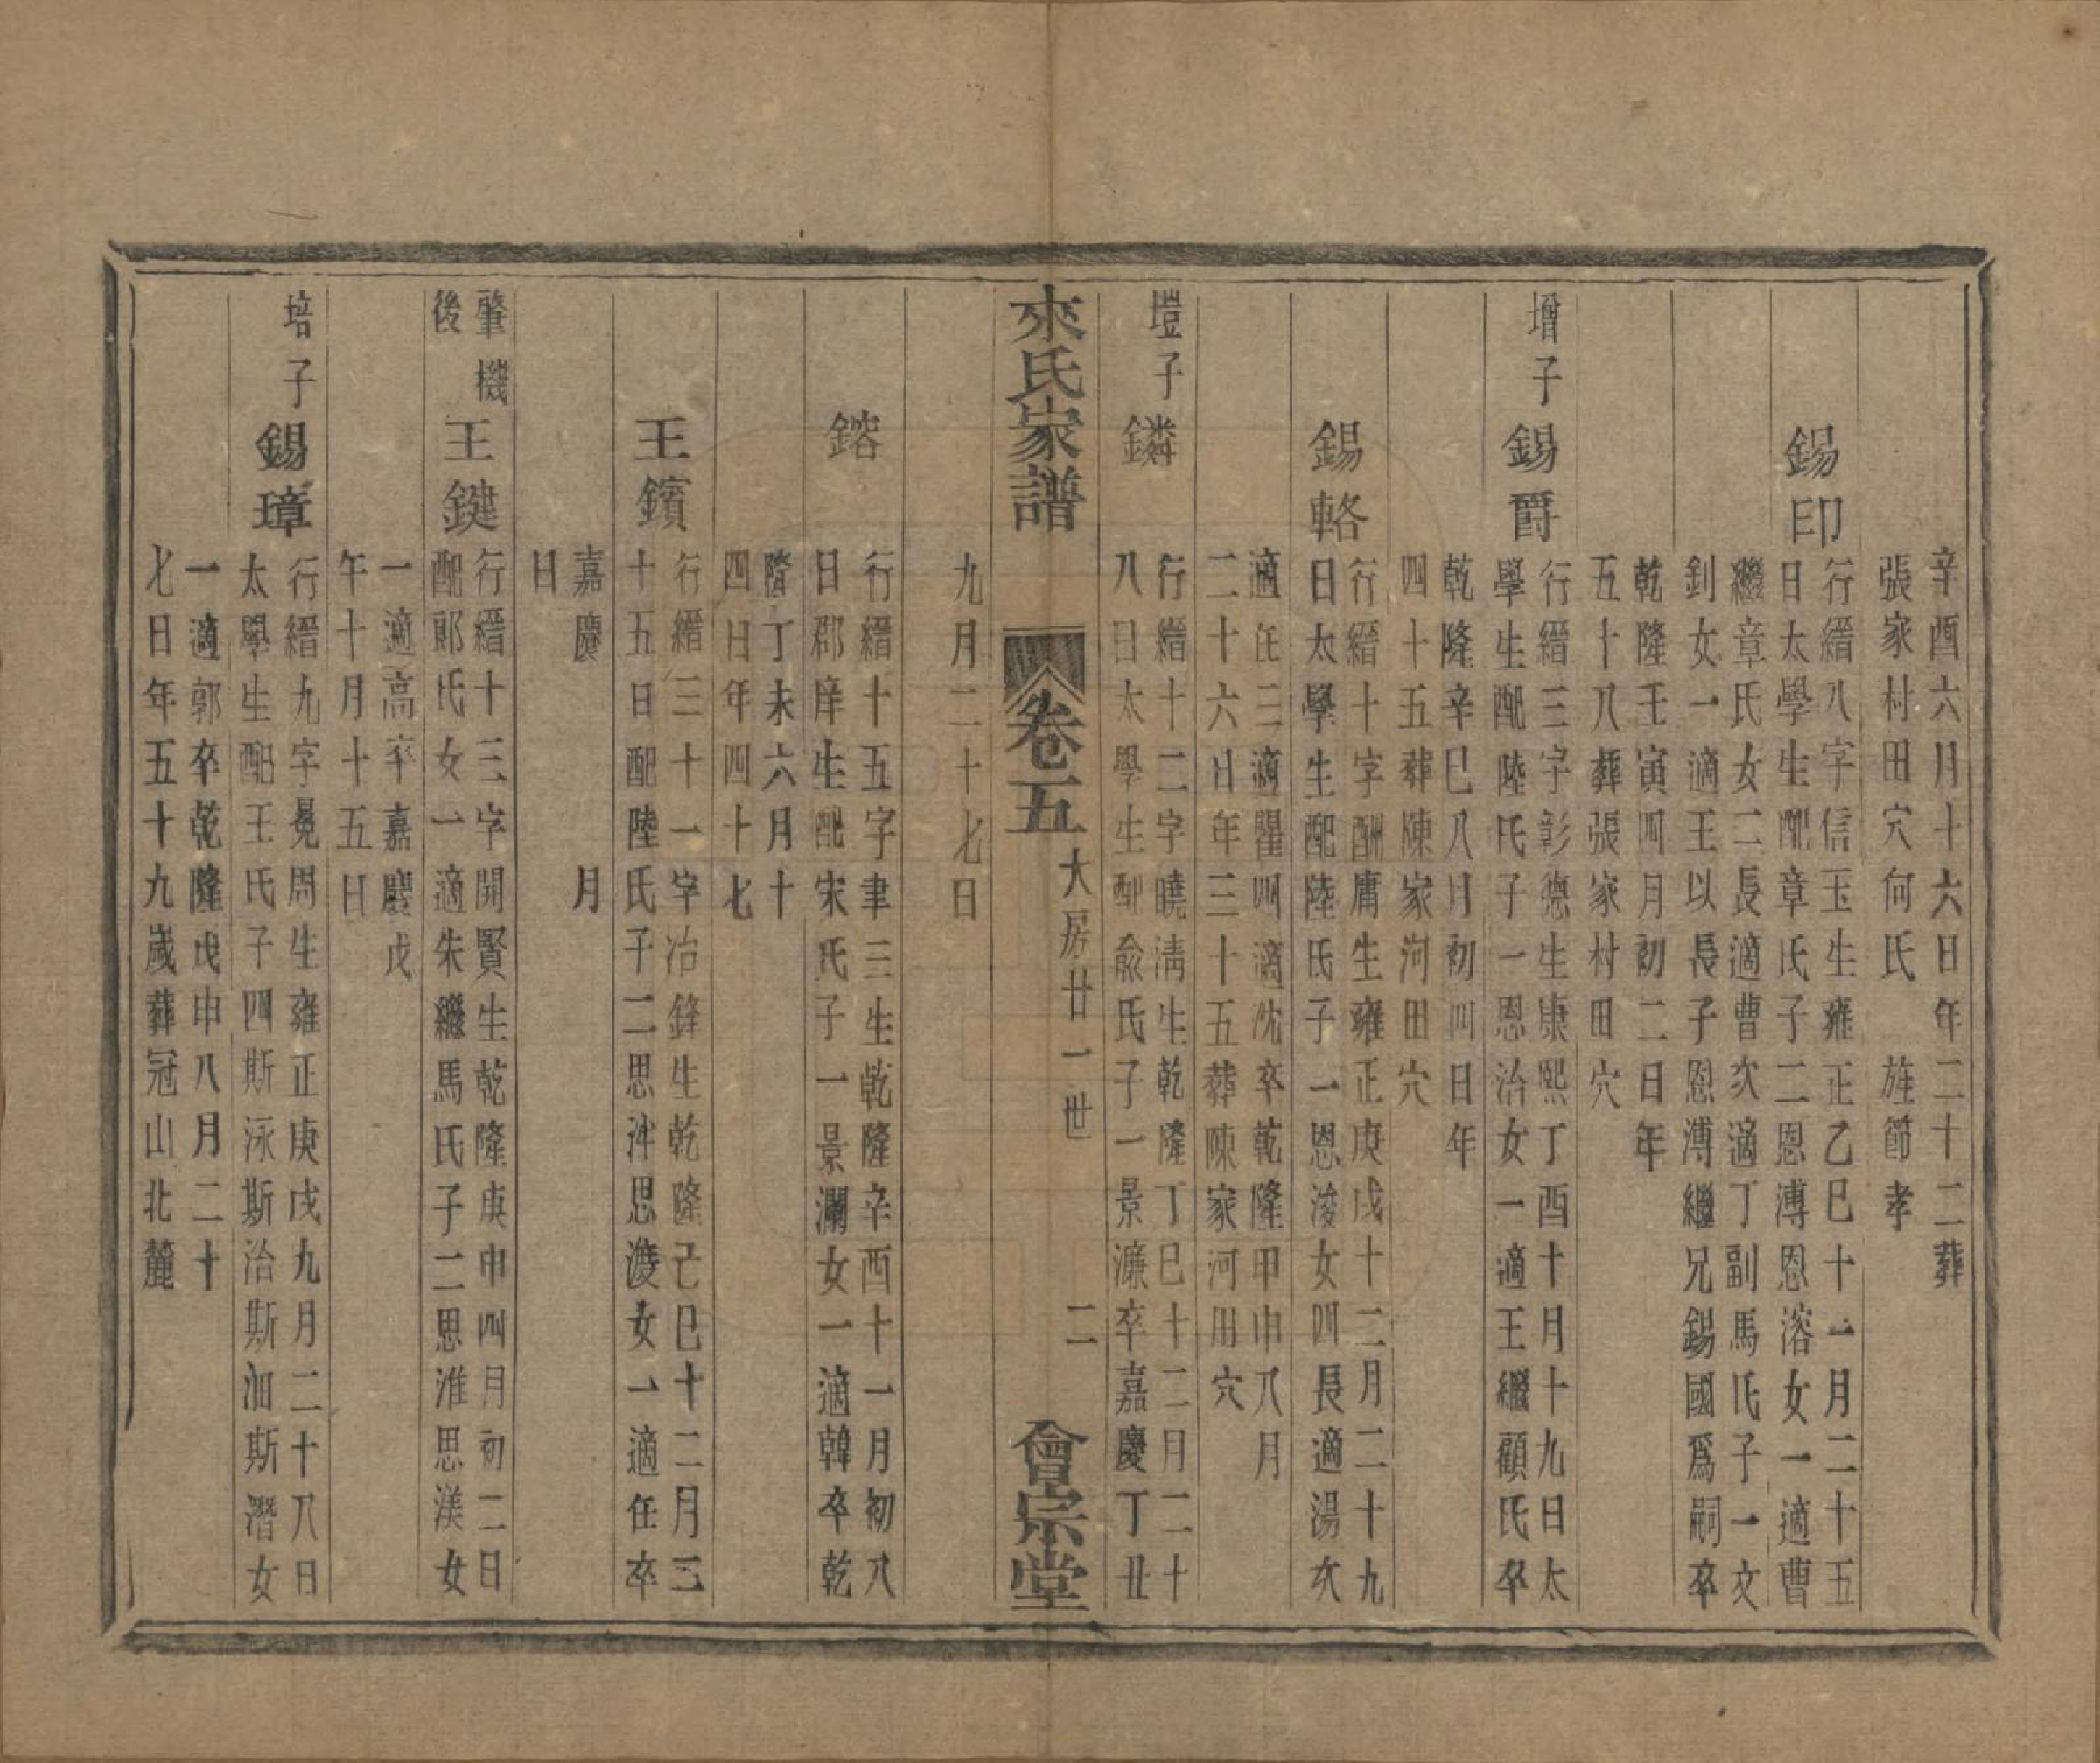 辛酉六月十六日年二十二葬
張家村田穴何氏　旌節孝
錫印
行縉八字信玉生雍正乙巳十一月二十五
日太學生配章氏子二恩溥恩溶女一適曹
繼章氏女二長適曹次適丁副馬氏子一文
釗女一適王以長子恩溥繼兄錫國爲嗣卒
乾隆壬寅四月初二日年
五十八葬張家村田穴
增子
錫爵
行縉三字彰德生康熙丁酉十月十九日太
學生配陸氏子一恩治女一適王繼顧氏卒
乾隆辛巳八月初四日年
四十五葬陳家河田穴
錫輅
行縉十字酬庸生雍正庚戌十二月二十九
日太學生配陸氏子一恩浚女四長適湯次
適任三適瞿四適沈卒乾隆甲申八月
二十六日年三十五葬陳家河田穴
塏子
鏻
行縉十二字曉清生乾隆丁巳十二月二十
八日太學生配俞氏子一景濂卒嘉慶丁丑
來氏家譜
卷五
大房廿一世
二
會宗堂
九月二十七日
鎔
行縉十五字聿三生乾隆辛酉十一月初八
日郡庠生配宋氏子一景瀾女一適韓卒乾
隆丁未六月十
四日年四十七
王鑌
行縉三十一字冶鋒生乾隆己巳十二月三
十五日配陸氏子二思沖思渡女一適任卒
嘉慶　月
日
肇機
後
王鍵
行縉十三字開賢生乾隆庚申四月初二日
配郎氏女一適朱繼馬氏子二思淮思渼女
一適高卒嘉慶戊
午十月十五日
培子
錫璋
行縉九字冕周生雍正庚戌九月二十八日
太學生配王氏子四斯泳斯治斯洄斯潛女
一適郭卒乾隆戊申八月二十
七日年五十九歲葬冠山北麓